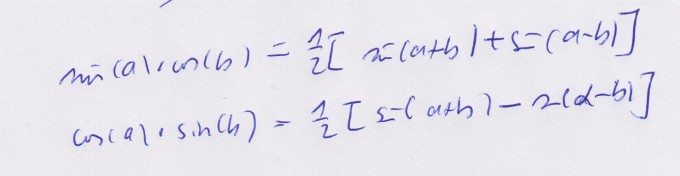 sin(a)·cos(b) = 1/2 [sin(a+b) + sin(a-b)]
cos(a)·sin(b) = 1/2 [sin(a+b) - sin(a-b)]